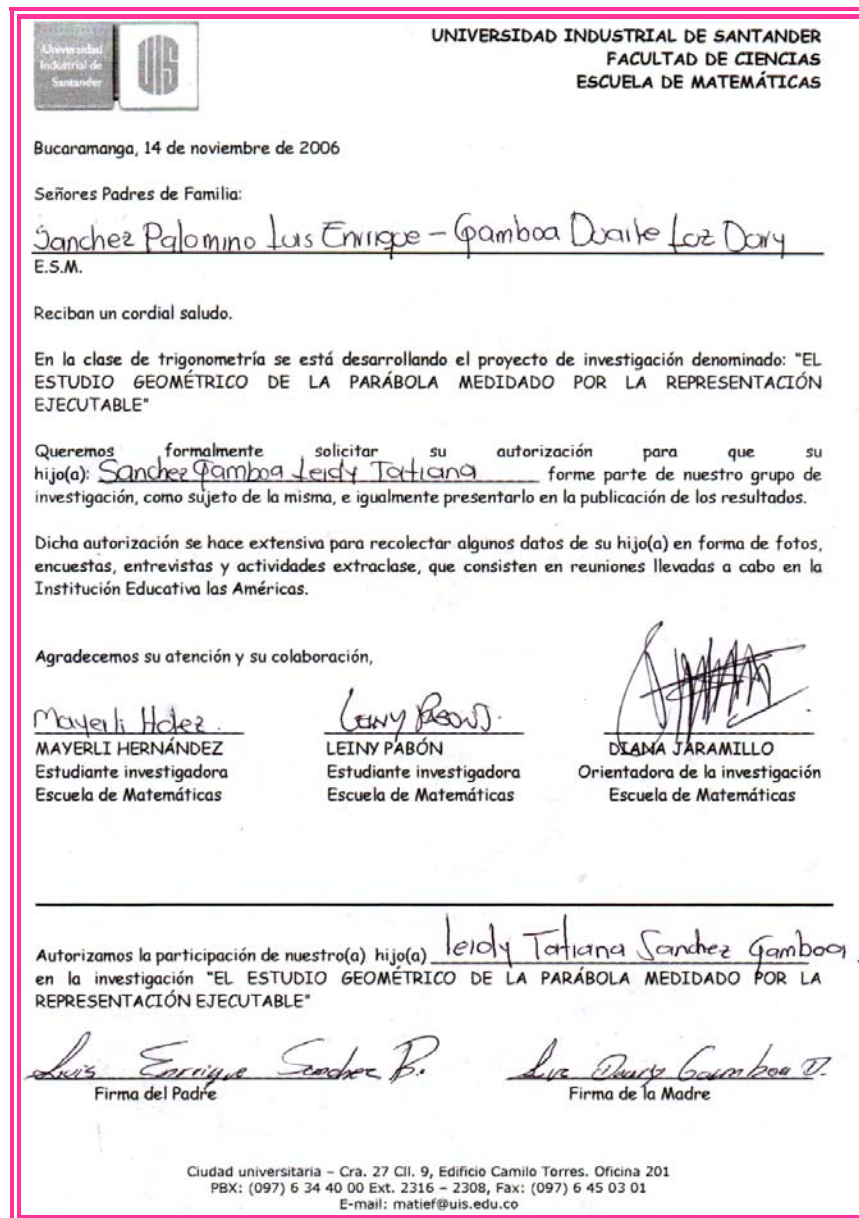 Universidad
Industrial de
Santander
UIS
UNIVERSIDAD INDUSTRIAL DE SANTANDER
FACULTAD DE CIENCIAS
ESCUELA DE MATEMÁTICAS
Bucaramanga, 14 de noviembre de 2006
Señores Padres de Familia:
Sanchez Palomino Luis Enrique – Gamboa Duarte Luz Dary
E.S.M.
Reciban un cordial saludo.
En la clase de trigonometría se está desarrollando el proyecto de investigación denominado: "EL
ESTUDIO GEOMÉTRICO DE LA PARÁBOLA MEDIDADO POR LA REPRESENTACIÓN
EJECUTABLE"
Queremos formalmente solicitar su autorización para que su
hijo(a): Sanchez Gamboa Leidy Tatiana forme parte de nuestro grupo de
investigación, como sujeto de la misma, e igualmente presentarlo en la publicación de los resultados.
Dicha autorización se hace extensiva para recolectar algunos datos de su hijo(a) en forma de fotos,
encuestas, entrevistas y actividades extraclase, que consisten en reuniones llevadas a cabo en la
Institución Educativa las Américas.
Agradecemos su atención y su colaboración,
Mayerli Hdez. Leiny Pabón
MAYERLI HERNÁNDEZ LEINY PABÓN DIANA JARAMILLO
Estudiante investigadora Estudiante investigadora Orientadora de la investigación
Escuela de Matemáticas Escuela de Matemáticas Escuela de Matemáticas
Autorizamos la participación de nuestro(a) hijo(a) leidy Tatiana Sanchez Gamboa
en la investigación "EL ESTUDIO GEOMÉTRICO DE LA PARÁBOLA MEDIDADO POR LA
REPRESENTACIÓN EJECUTABLE"
Luis Enrique Sanchez P. Luz Dary Gamboa D.
Firma del Padre Firma de la Madre
Ciudad universitaria – Cra. 27 Cll. 9, Edificio Camilo Torres. Oficina 201
PBX: (097) 6 34 40 00 Ext. 2316 – 2308, Fax: (097) 6 45 03 01
E-mail: matief@uis.edu.co